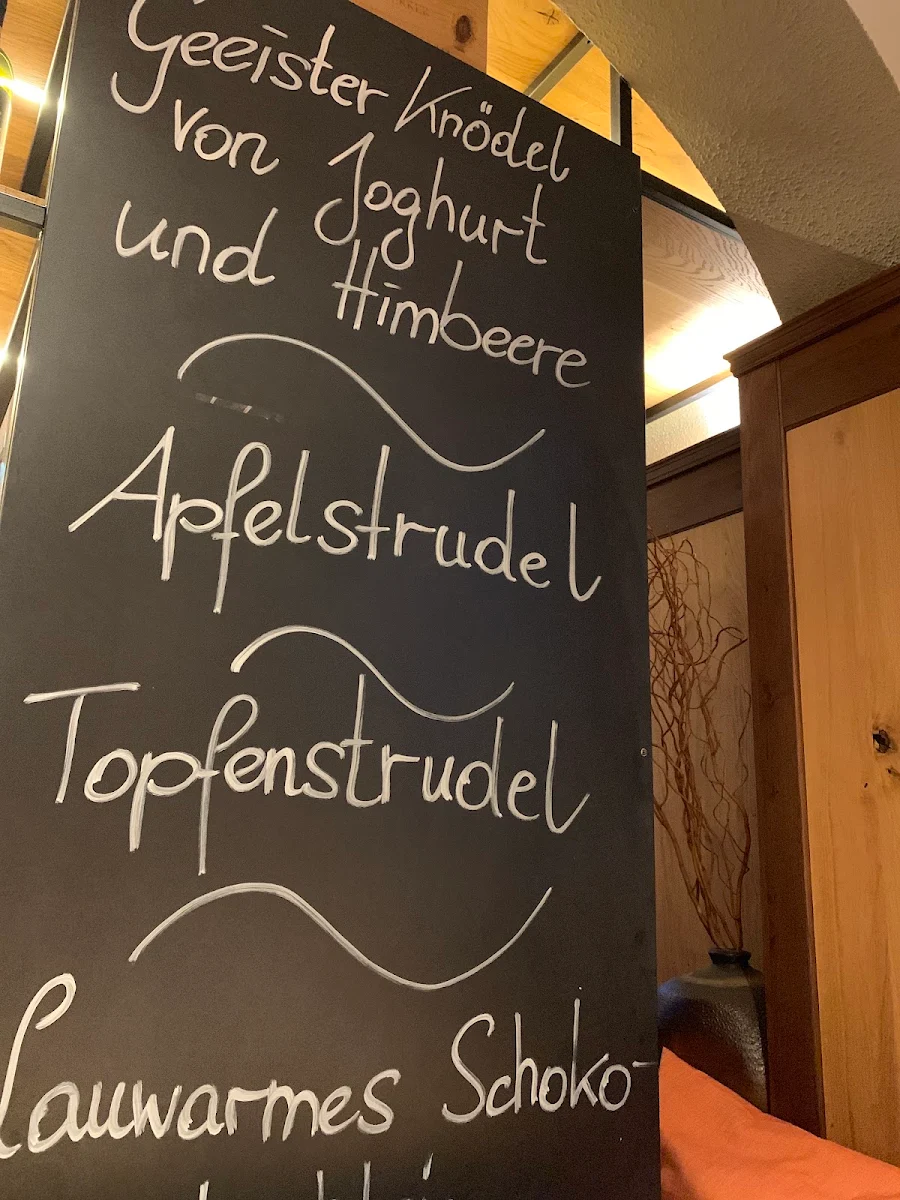 Geeister Knödel
von Joghurt
und Himbeere
Apfelstrudel
Topfenstrudel
Lauwarmes Schoko-